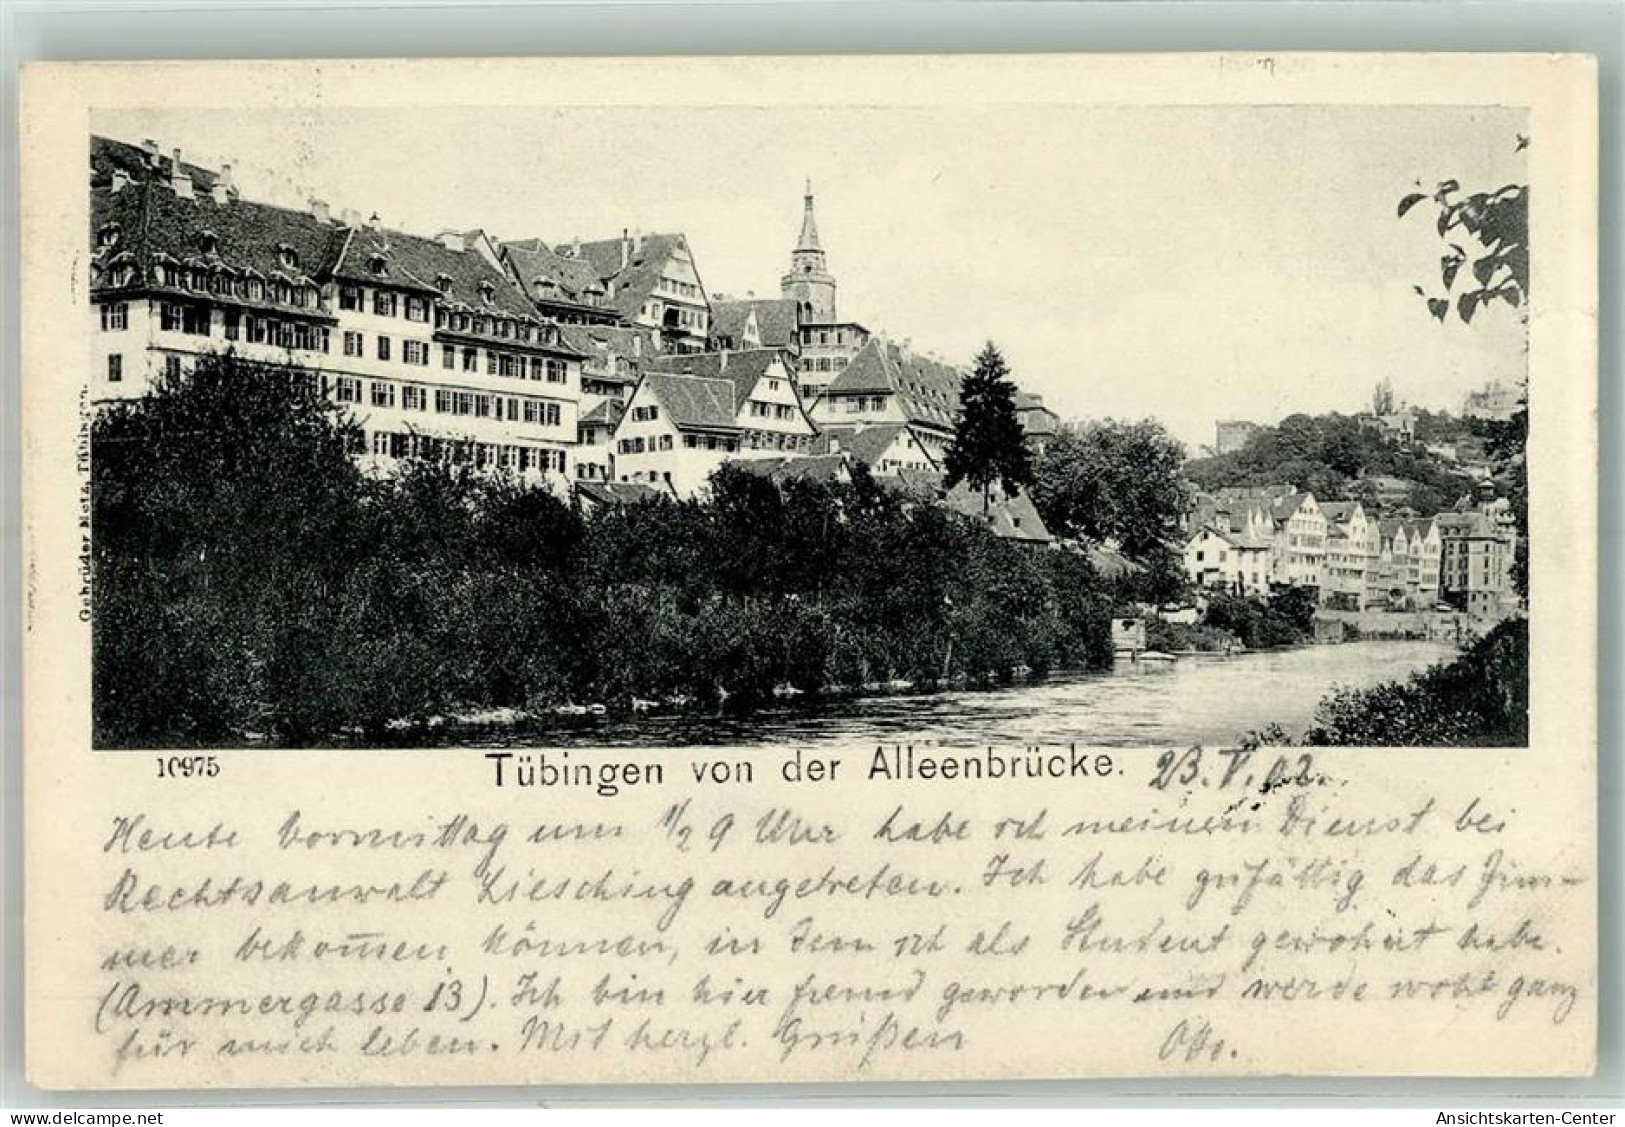 Gebrüder Metz, Tübingen.
10975
Tübingen von der Alleenbrücke. 23. V. 02.
Heute Vormittag um 1/2 9 Uhr habe ich meinen Dienst bei
Rechtsanwalt Liesching angetreten. Ich habe zufällig das Zim-
mer bekom̅en können, in dem ich als Student gewohnt habe.
(Ammergasse 13). Ich bin hier fremd geworden und werde wohl ganz
für mich leben. Mit herzl. Grüßen Otto.
delcampe.net
Ansichtskarten-Center